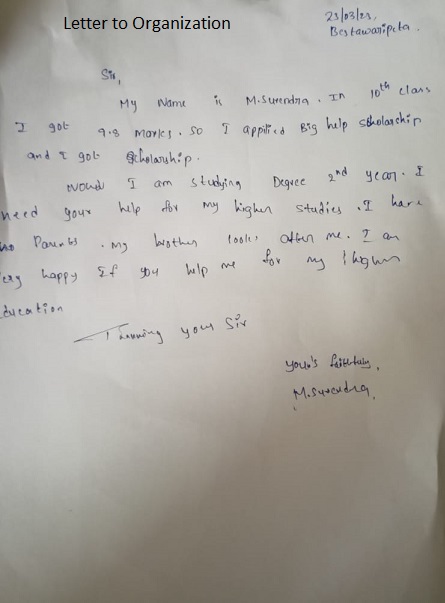 Letter to Organization
23/03/23,
Bestawaripeta.
Sir,
My Name is M.Surendra. In 10th class
I got 9.8 Marks. So I applied Big help scholarship
and I got Scholarship.
Now I am studying Degree 2nd year. I
need your help for my higher studies. I have
no Parents. My brother looks after me. I am
very happy If you help me for my higher
Education
Thanking your Sir
your's faithfully,
M.Surendra,